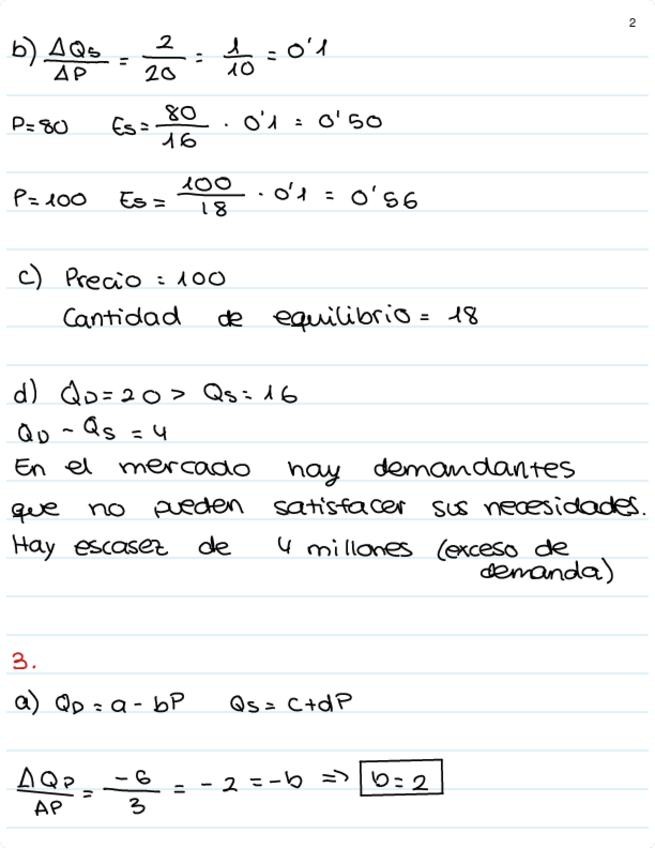 2
b) ΔQs/ΔP = 2/20 = 1/10 = 0'1
P=80 Es = 80/16 · 0'1 = 0'50
P=100 Es = 100/18 · 0'1 = 0'56
c) Precio = 100
Cantidad de equilibrio = 18
d) QD = 20 > Qs = 16
QD - Qs = 4
En el mercado hay demandantes
que no pueden satisfacer sus necesidades.
Hay escasez de 4 millones (exceso de
demanda)
3.
a) QD = a - bP Qs = c+dP
ΔQP/AP = -6/3 = -2 = -b => b=2